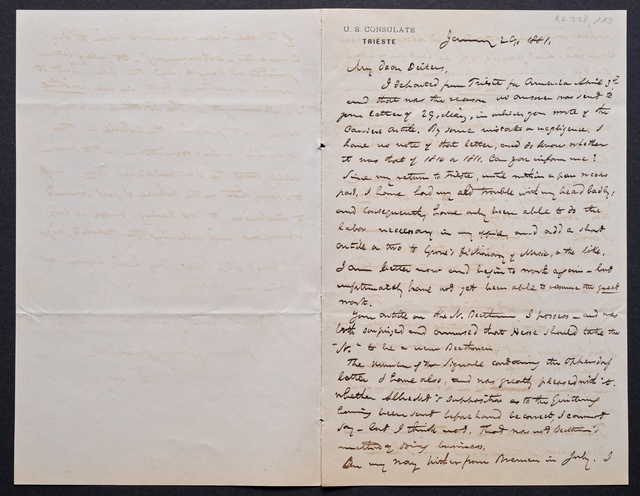 U. S. CONSULATE
TRIESTE
January 29, 1881.
My dear Deiters,
I departed from Trieste for America April 3rd
and that was the reason no answer was sent to
your letter of 29, May, in which you wrote of the
article. By some mistake or negligence, I
have no note of that letter, and do know whether
it was that of 1810 or 1811. Can you inform me?
Since my return to Trieste, until within a few weeks
past, I have had my old trouble with my head badly,
and consequently have only been able to do the
labor necessary in my office, and add a short
article or two to Grove's Dictionary of Music, or the like.
I am better now and begin to work again – but
unfortunately have not yet been able to resume the great
work.
Your article on the N. Beethoven I possess – and was
both surprized and amused that Hesse should take the
"N." to be a new Beethoven.
The number of the Signale containing the Oppersdorf
letter I have also, and was greatly pleased with it.
Whether Albrecht's supposition as to the Quittung
having been sent beforehand be correct, I cannot
say – but I think not. That was not Beethoven's
method of doing business.
On my way hither from Bremen in July, I